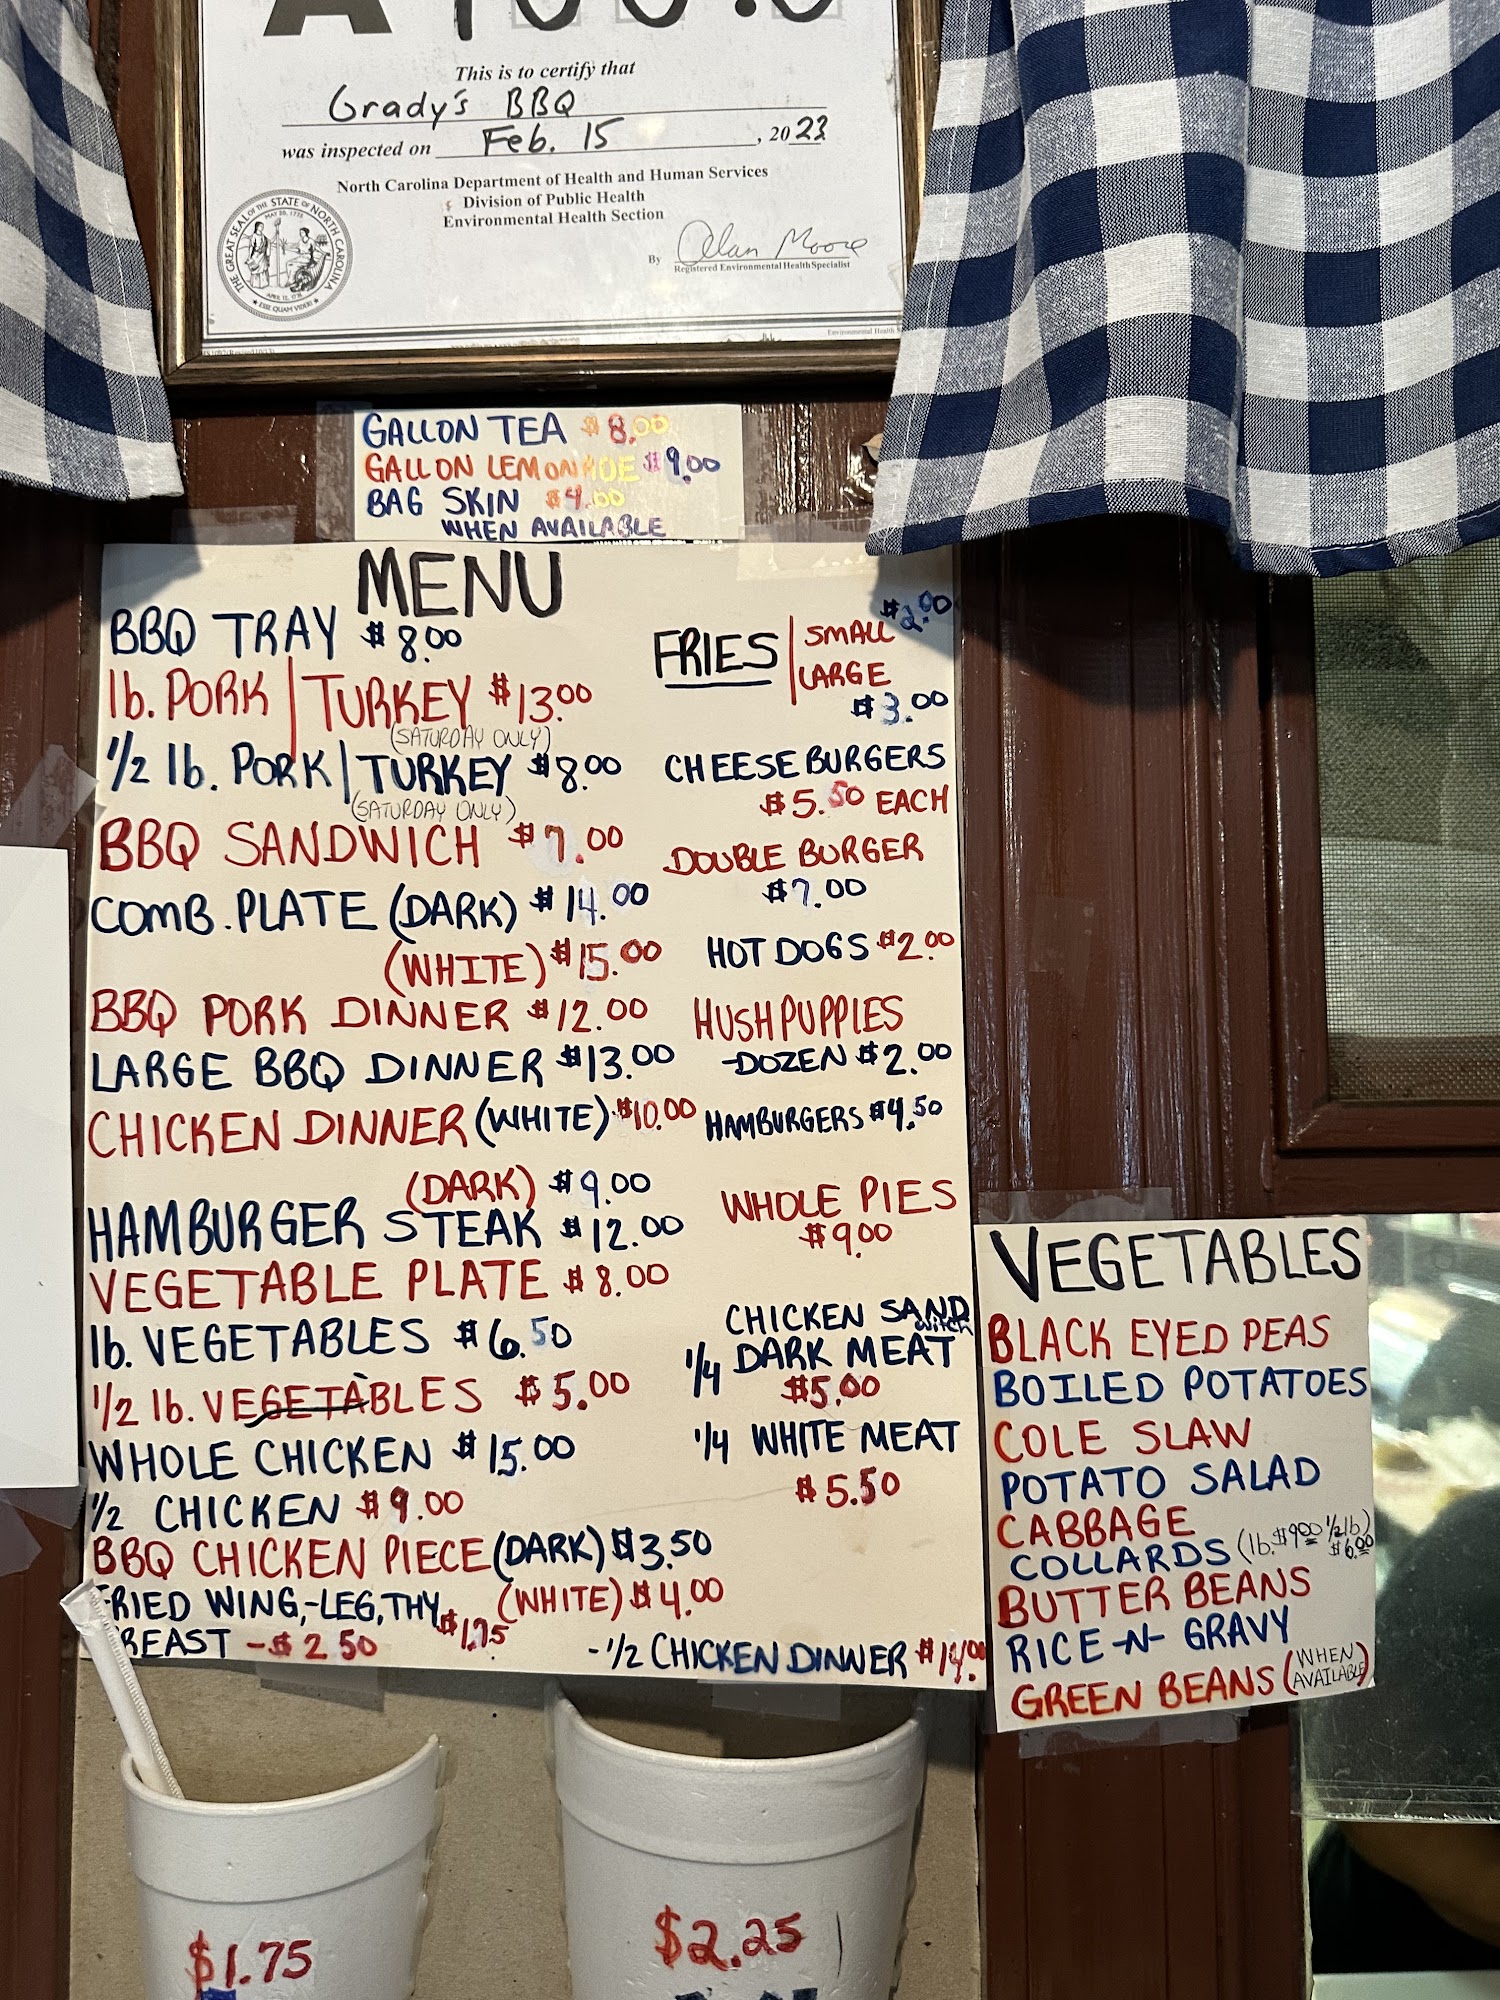 A 100.0
This is to certify that
Grady's BBQ
was inspected on Feb. 15, 2023
North Carolina Department of Health and Human Services
Division of Public Health
Environmental Health Section
THE GREAT SEAL OF THE STATE OF NORTH CAROLINA
MAY 20, 1775
APRIL 12, 1776
ESSE QUAM VIDERI
By Alan Moore
Registered Environmental Health Specialist
Environmental Health
GALLON TEA $8.00
GALLON LEMONADE $9.00
BAG SKIN $4.00
WHEN AVAILABLE
MENU
BBQ TRAY $8.00
lb. PORK | TURKEY $13.00
(SATURDAY ONLY)
1/2 lb. PORK | TURKEY $8.00
(SATURDAY ONLY)
BBQ SANDWICH $7.00
COMB. PLATE (DARK) $14.00
(WHITE) $15.00
BBQ PORK DINNER $12.00
LARGE BBQ DINNER $13.00
CHICKEN DINNER (WHITE) $10.00
(DARK) $9.00
HAMBURGER STEAK $12.00
VEGETABLE PLATE $8.00
lb. VEGETABLES $6.50
1/2 lb. VEGETABLES $5.00
WHOLE CHICKEN $15.00
1/2 CHICKEN $9.00
BBQ CHICKEN PIECE (DARK) $3.50
(WHITE) $4.00
FRIED WING,-LEG,THY $1.75
BREAST - $2.50
- 1/2 CHICKEN DINNER $14.00
FRIES | SMALL $2.00
LARGE
$3.00
CHEESEBURGERS
$5.50 EACH
DOUBLE BURGER
$7.00
HOT DOGS $2.00
HUSHPUPPIES
-DOZEN $2.00
HAMBURGERS $4.50
WHOLE PIES
$9.00
CHICKEN SANDWitch
1/4 DARK MEAT
$5.00
1/4 WHITE MEAT
$5.50
VEGETABLES
BLACK EYED PEAS
BOILED POTATOES
COLE SLAW
POTATO SALAD
CABBAGE
COLLARDS (lb. $9.00 1/2 lb) $6.00
BUTTER BEANS
RICE -N- GRAVY
GREEN BEANS (WHEN AVAILABLE)
$1.75
$2.25